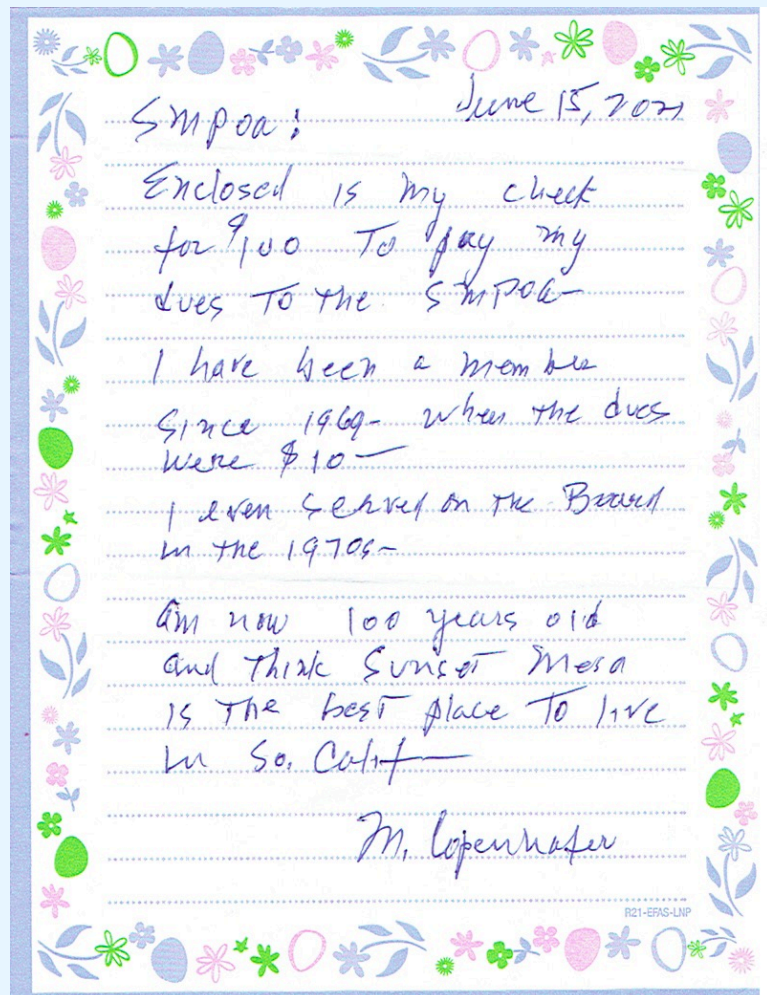 June 15, 2021
SMPOA:
Enclosed is my check
for $100 To pay my
dues To the SMPOA-
I have been a member
since 1969- when the dues
were $10—
I even served on the Board
in the 1970s-
am now 100 years old
and think Sunset Mesa
is the best place To live
in So. Calif—
M. Copenhafer
R21-EFAS-LNP